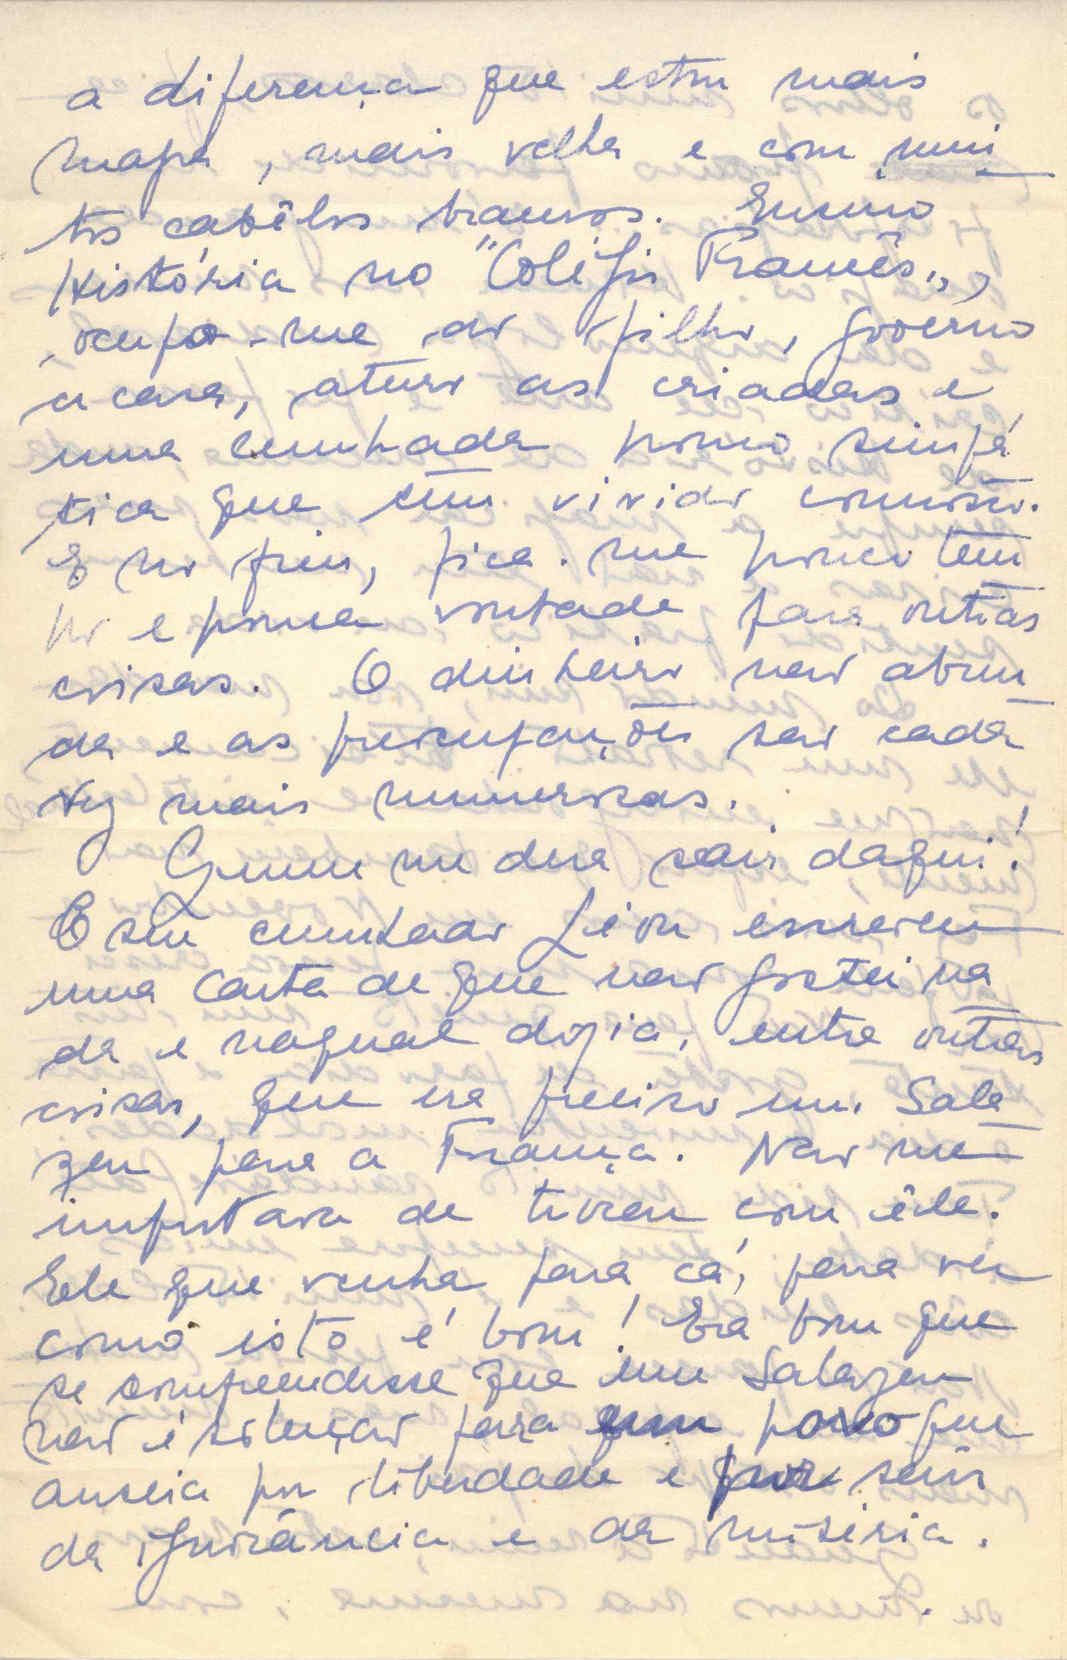 a diferença que estou mais
magra, mais velha e com mui
tos cabêlos brancos. Ensino
História no "Colégio Francês",
ocupo-me do filho, governo
a casa, aturo as criadas e
uma cunhada pouco simpá
tica que tem vivido comnosco.
E no fim, fica-me pouco tem
po e pouca vontade para outras
coisas. O dinheiro não abun
da e as preocupações são cada
vez mais numerosas.
Quem me dera sair daqui!
O seu cunhado Léon escreveu
uma carta de que não gostei na
da e na qual dizia, entre outras
coisas, que era preciso um Sala
zar para a França. Não me
importava de trocar com êle.
Ele que venha para cá, para ver
como isto é bom! Era bom que
se compreendesse que um Salazar
não é solução para um povo que
anseia por liberdade e por sair
da ignorância e da miséria.